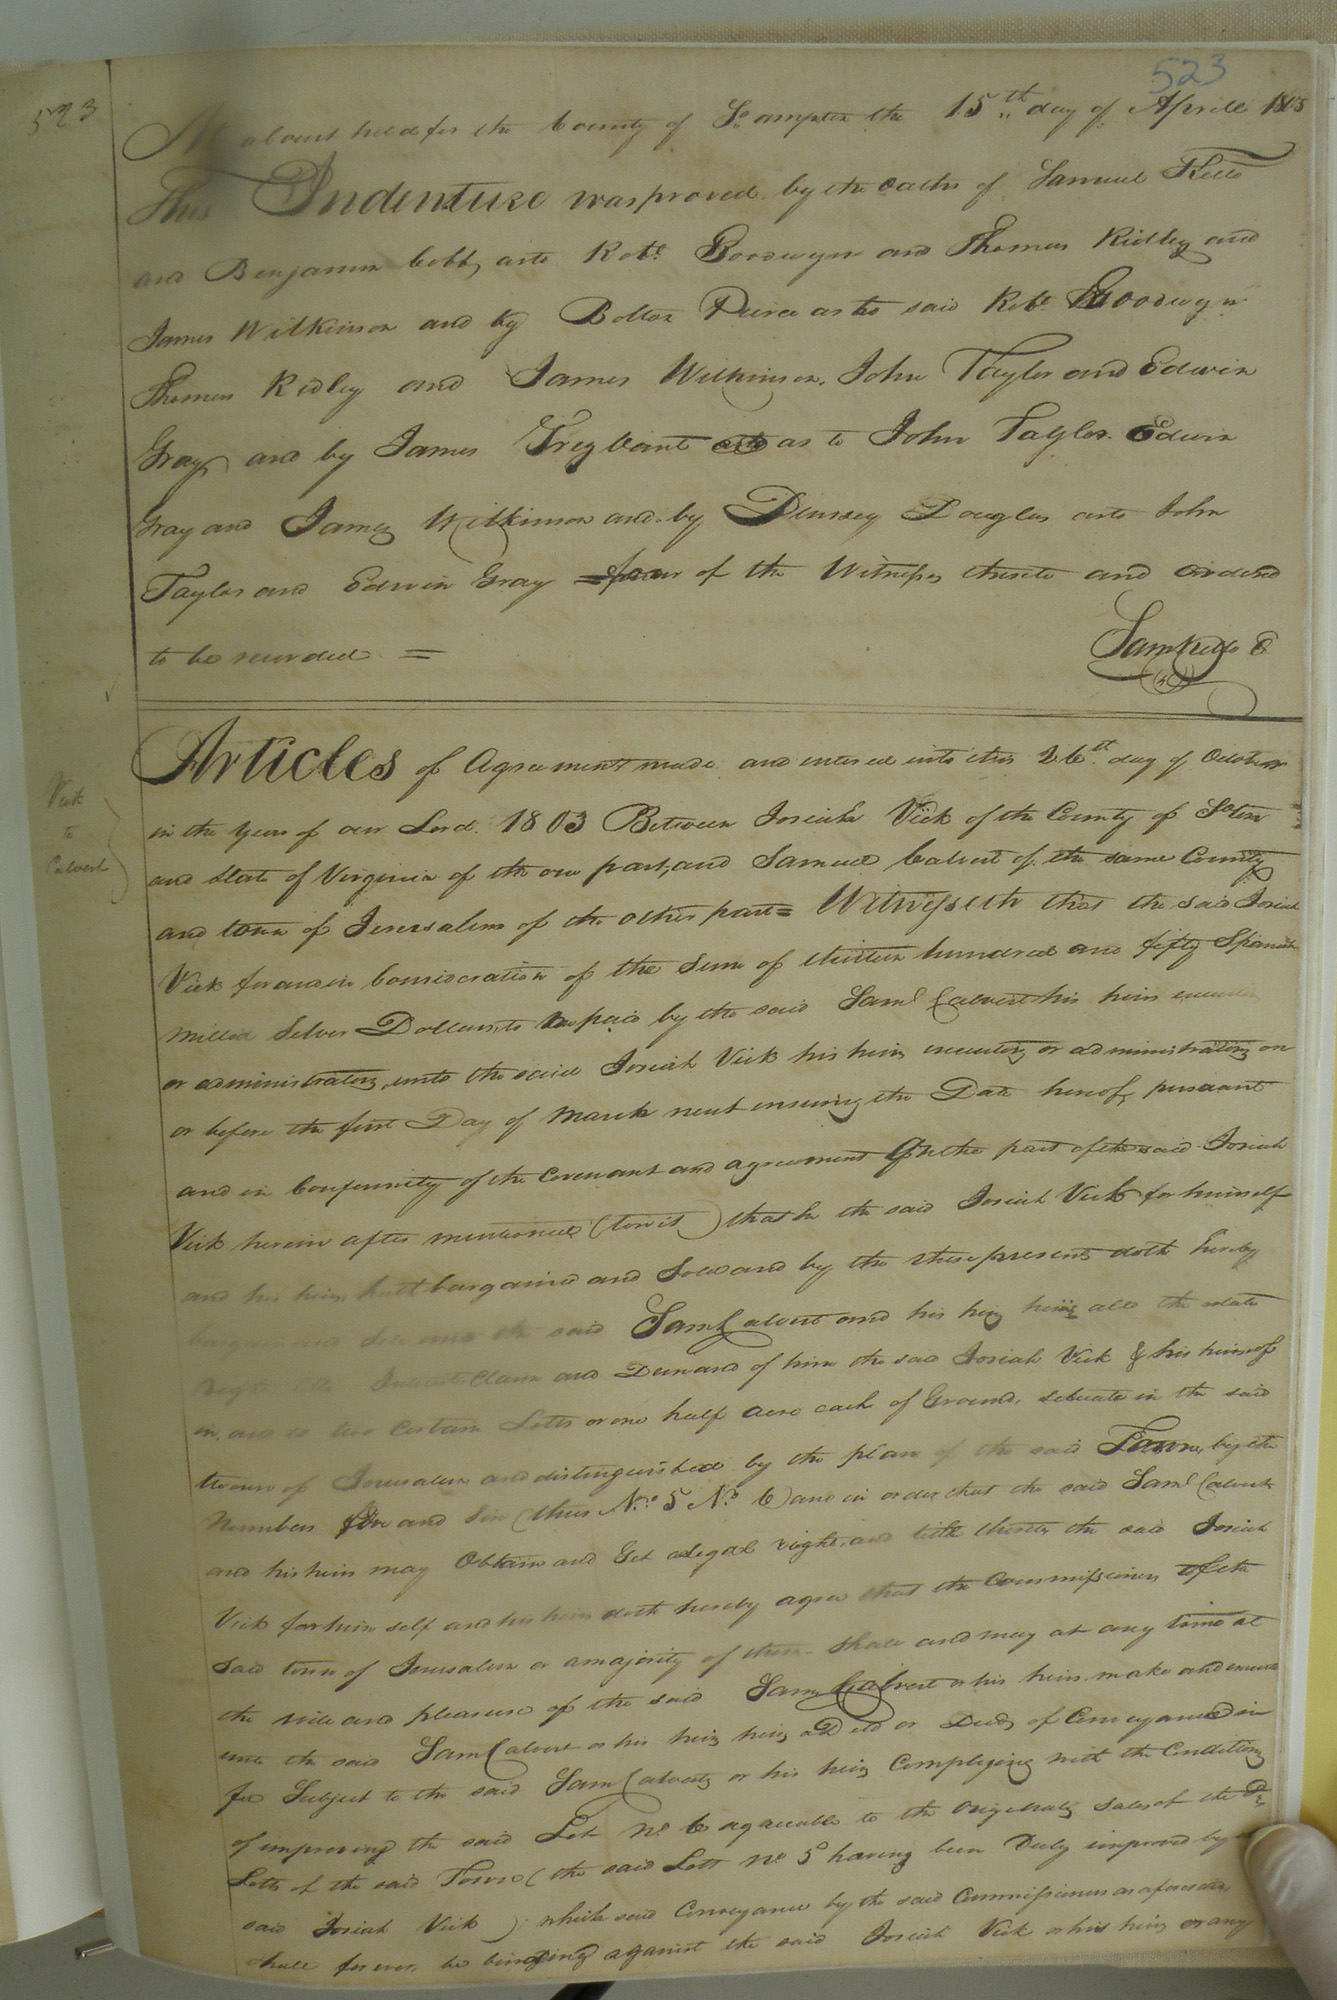 523
523
At a Court held for the County of So.ampton the 15th day of Aprill 1805
This Indenture was proved by the oaths of Samuel Kello
and Benjamin Cobb, as to Robt. Goodwyn and Thomas Ridley and
James Wilkinson and by Bolton Peirce as to said Robt. Goodwyn
Thomas Ridley and James Wilkinson, John Taylor and Edwin
Gray and by James Trezvant as to John Taylor Edwin
Gray and James Wilkinson and by Dempsey Douglas as to John
Taylor and Edwin Gray four of the Witnesses thereto and ordered
to be recorded =
Sam Kello C
Vick
to
Calvert
Articles of Agreement made and entered into this 26st. day of October
in the Year of our Lord 1803 Between Josiah Vick of the County of So.ton
and State of Virginia of the one part, and Samuel Calvert of the same County
and town of Jerusalem of the other part = Witnesseth that the said Josiah
Vick for and in Consideration of the Sum of thirteen hundred and fifty Spanish
milled Silver Dollars, to be paid by the said Saml Calvert his heirs executors
or administrators, unto the said Josiah Vick his heirs executors or administrators on
or before the first Day of March next ensuing the Date hereof, pursuant
and in Conformity of the Covenant and agreement On the part of the said Josiah
Vick herein after mentioned (towit) that he the said Josiah Vick for himself
and his heirs hath bargained and Sold and by the these presents doth hereby
bargain and Sell unto the said Saml Calvert and his heirs heirs all the estate
right title Interest Claim and Demand of him the said Josiah Vick & his heirs of
in, and to two Certain Lotts or one half acre each of Ground, situate in the said
town of Jerusalem and distinguished by the plan of the said Town, by the
Numbers five and Six (thus No. 5 No. 6) and in order that the said Saml Calvert
and his heirs may Obtain and Get a legal right, and title thereto the said Josiah
Vick for him self and his heirs doth hereby agree that the Commissioners of the
said town of Jerusalem or a majority of them shall and may at any time at
the will and pleasure of the said Saml Calvert or his heirs make and execute
unto the said Saml Calvert or his heirs heirs a Deed or Deeds of Conveyance in
fee Subject to the said Saml Calverts or his heirs Complying with the Conditions
of improving the said Lot No. 6 agreeable to the Original sales of the
Lotts of the said Town (the said Lott No 5 having been Duly improved by
said Josiah Vick); which said Conveyance by the said Commissioners as aforesaid,
shall for ever, be binding against the said Josiah Vick or his heirs or any